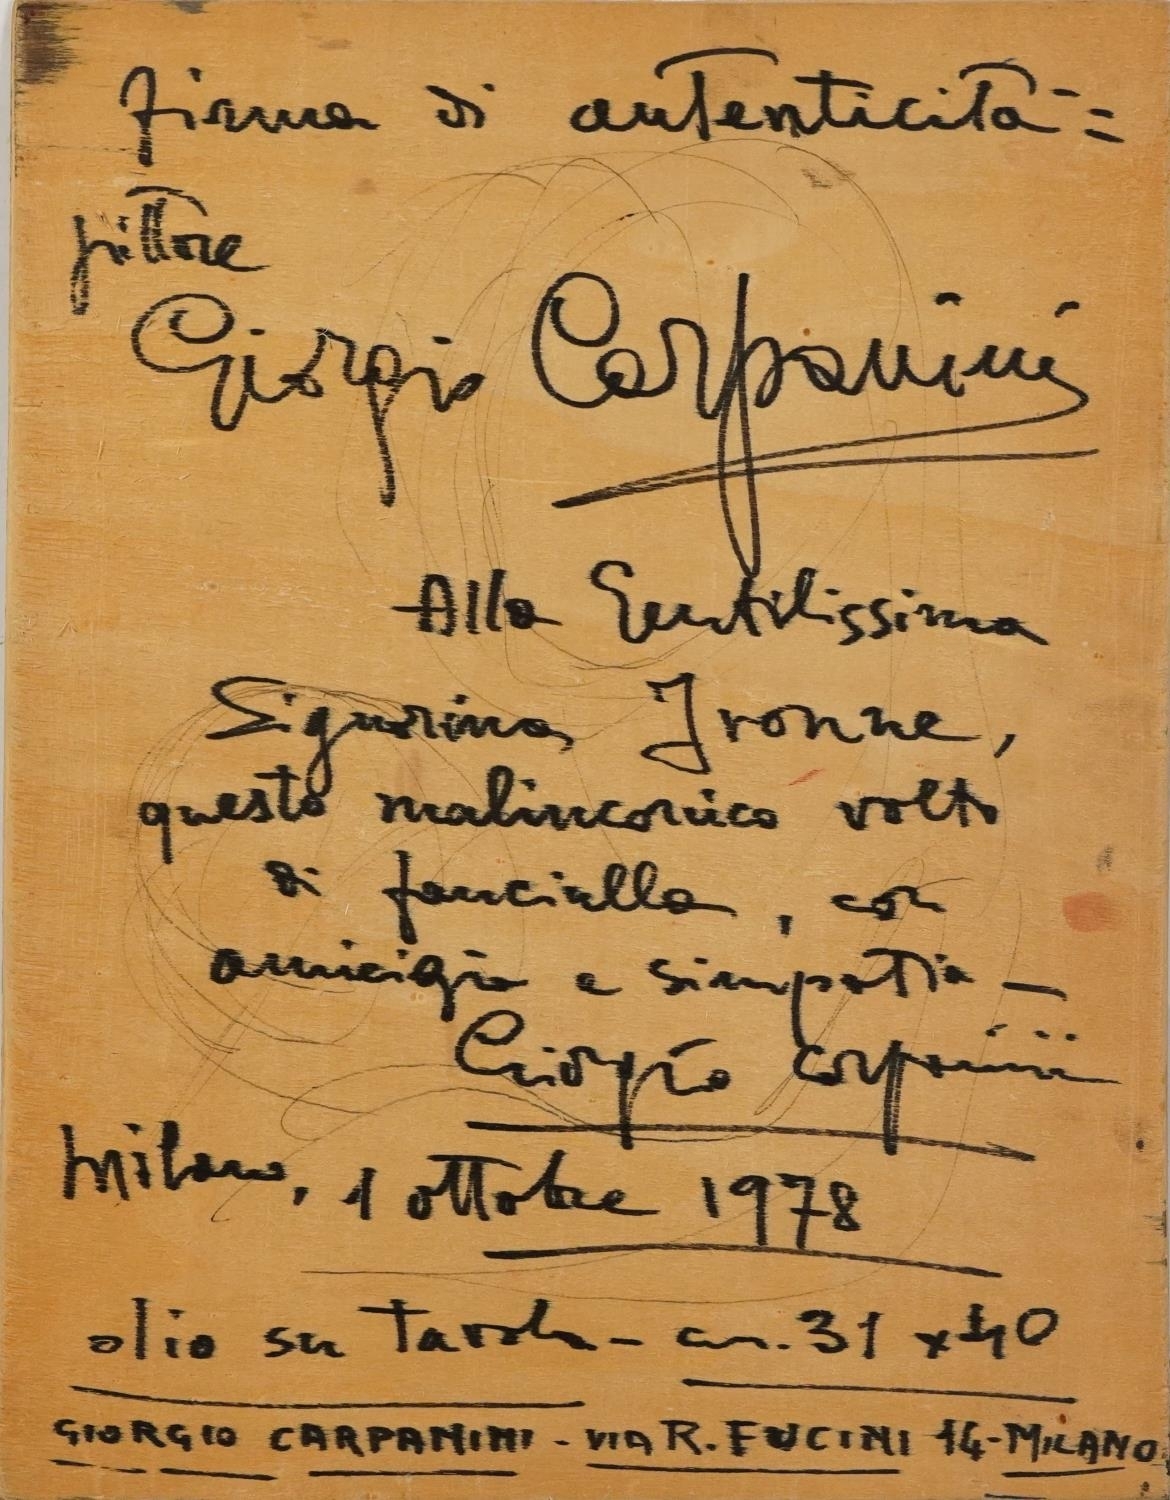 firma di autenticità =
pittore
Giorgio Carpanini
Alla Gentilissima
Signorina Ivonne,
questo malinconico volto
di fanciulla, con
amicizia e simpatia —
Giorgio Carpanini
Milano, 1 ottobre 1978
olio su tavola - cm. 31 x 40
GIORGIO CARPANINI - VIA R. FUCINI 14 - MILANO